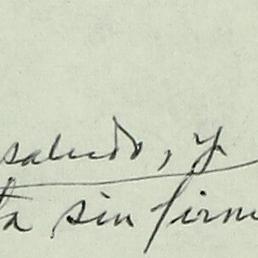 saludo, y
ta sin firm